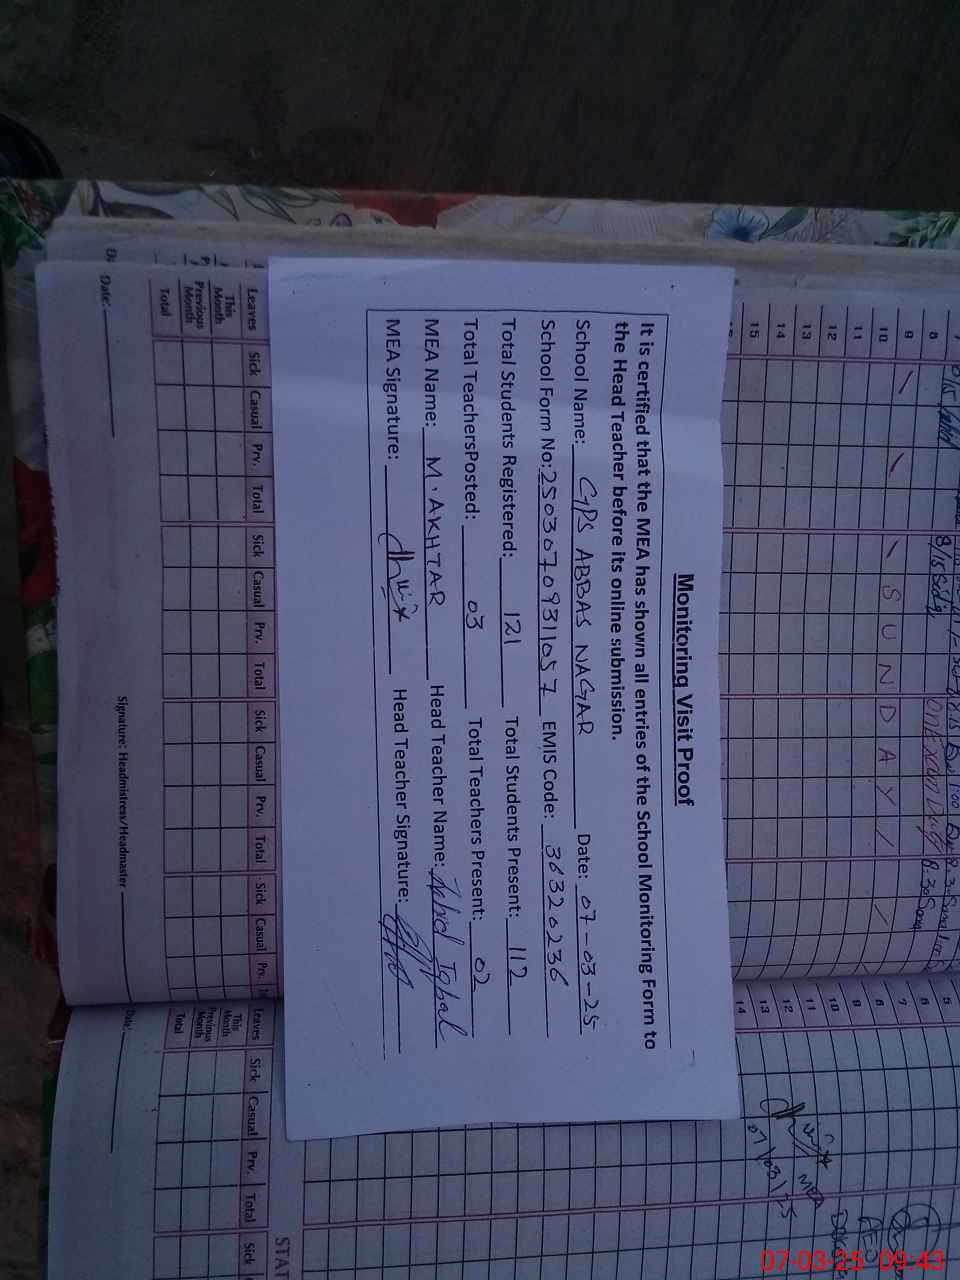 Monitoring Visit Proof
It is certified that the MEA has shown all entries of the School Monitoring Form to
the Head Teacher before its online submission.
School Name: GPS ABBAS NAGAR Date: 07-03-25
School Form No: 250307093111057 EMIS Code: 36320236
Total Students Registered: 121 Total Students Present: 112
Total TeachersPosted: 03 Total Teachers Present: 02
MEA Name: M. AKHTAR Head Teacher Name: Zahid Iqbal
MEA Signature: Head Teacher Signature:
8
9
10 SUNDAY
11
12
13
14
15
Leaves Sick Casual Prv. Total Sick Casual Prv. Total Sick Casual Prv. Total Sick Casual Prv.
This Month
Previous Month
Total
Date:
Signature: Headmistress/Headmaster
5
6
7
8
9
10
11
12
13
14
MEA
07/03/25
Leaves Sick Casual Prv. Total Sick
This Month
Previous Month
Total
Date:
STAT
07-03-25 09:43